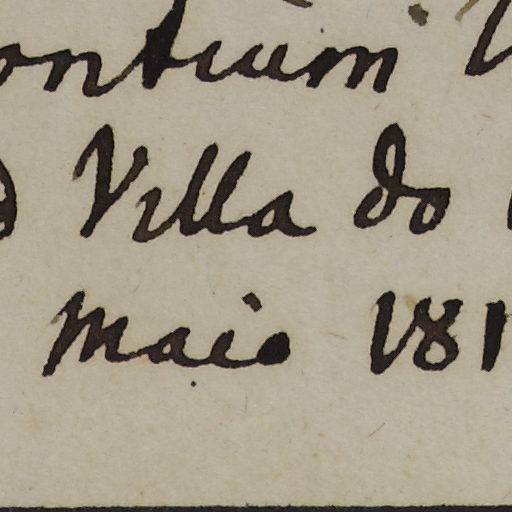 ontium
Villa do
Maio 181